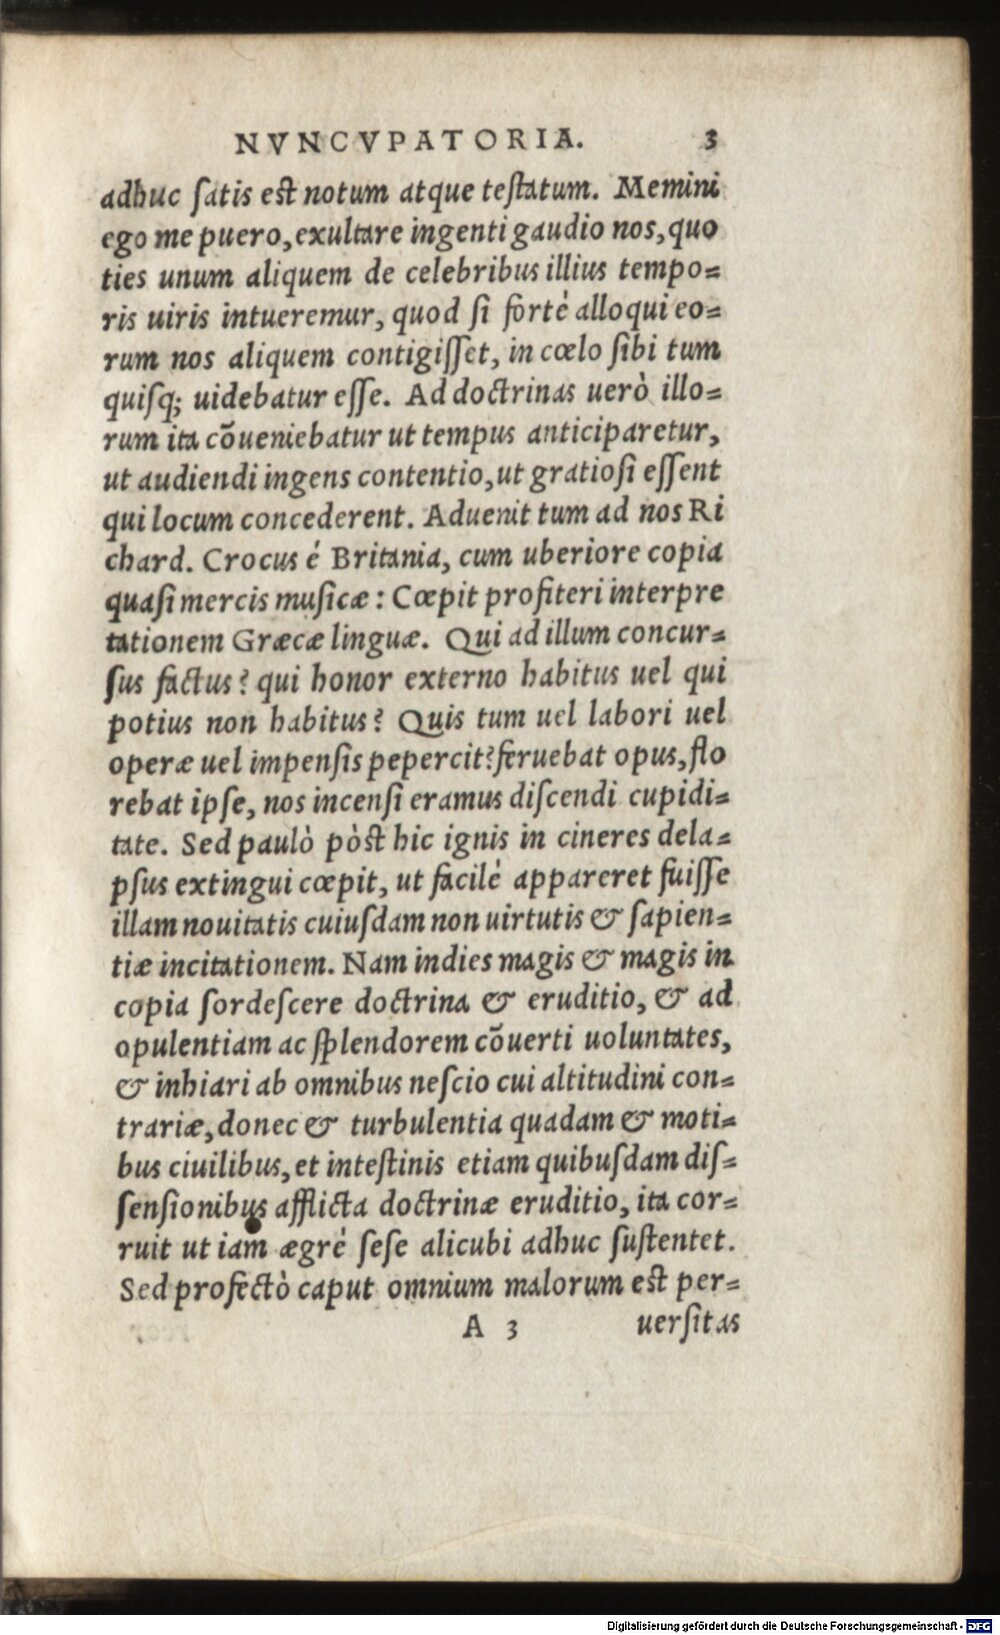 NVNCVPATORIA. 3
adhuc ſatis est notum atque teſtatum. Memini
ego me puero, exultare ingenti gaudio nos, quo
ties unum aliquem de celebribus illius tempo=
ris uiris intueremur, quod ſi forté alloqui eo=
rum nos aliquem contigiſſet, in cœlo ſibi tum
quiſq; uidebatur eſſe. Ad doctrinas uerò illo=
rum ita cõueniebatur ut tempus anticiparetur,
ut audiendi ingens contentio, ut gratioſi eſſent
qui locum concederent. Aduenit tum ad nos Ri
chard. Crocus é Britania, cum uberiore copia
quaſi mercis muſicæ: Cœpit profiteri interpre
tationem Græcæ linguæ. Qui ad illum concur=
ſus factus? qui honor externo habitus uel qui
potius non habitus? Quis tum uel labori uel
operæ uel impenſis pepercit? feruebat opus, flo
rebat ipſe, nos incenſi eramus diſcendi cupidi=
tate. Sed paulò pòst hic ignis in cineres dela=
pſus extingui cœpit, ut facilé appareret fuiſſe
illam nouitatis cuiuſdam non uirtutis & ſapien=
tiæ incitationem. Nam indies magis & magis in
copia ſordeſcere doctrina & eruditio, & ad
opulentiam ac ſplendorem cõuerti uoluntates,
& inhiari ab omnibus neſcio cui altitudini con=
trariæ, donec & turbulentia quadam & moti=
bus ciuilibus, et inteſtinis etiam quibuſdam diſ=
ſenſionibus afflicta doctrinæ eruditio, ita cor=
ruit ut iam ægré ſeſe alicubi adhuc ſuſtentet.
Sed profectò caput omnium malorum est per=
A 3 uerſitas
Digitalisierung gefördert durch die Deutsche Forschungsgemeinschaft - DFG